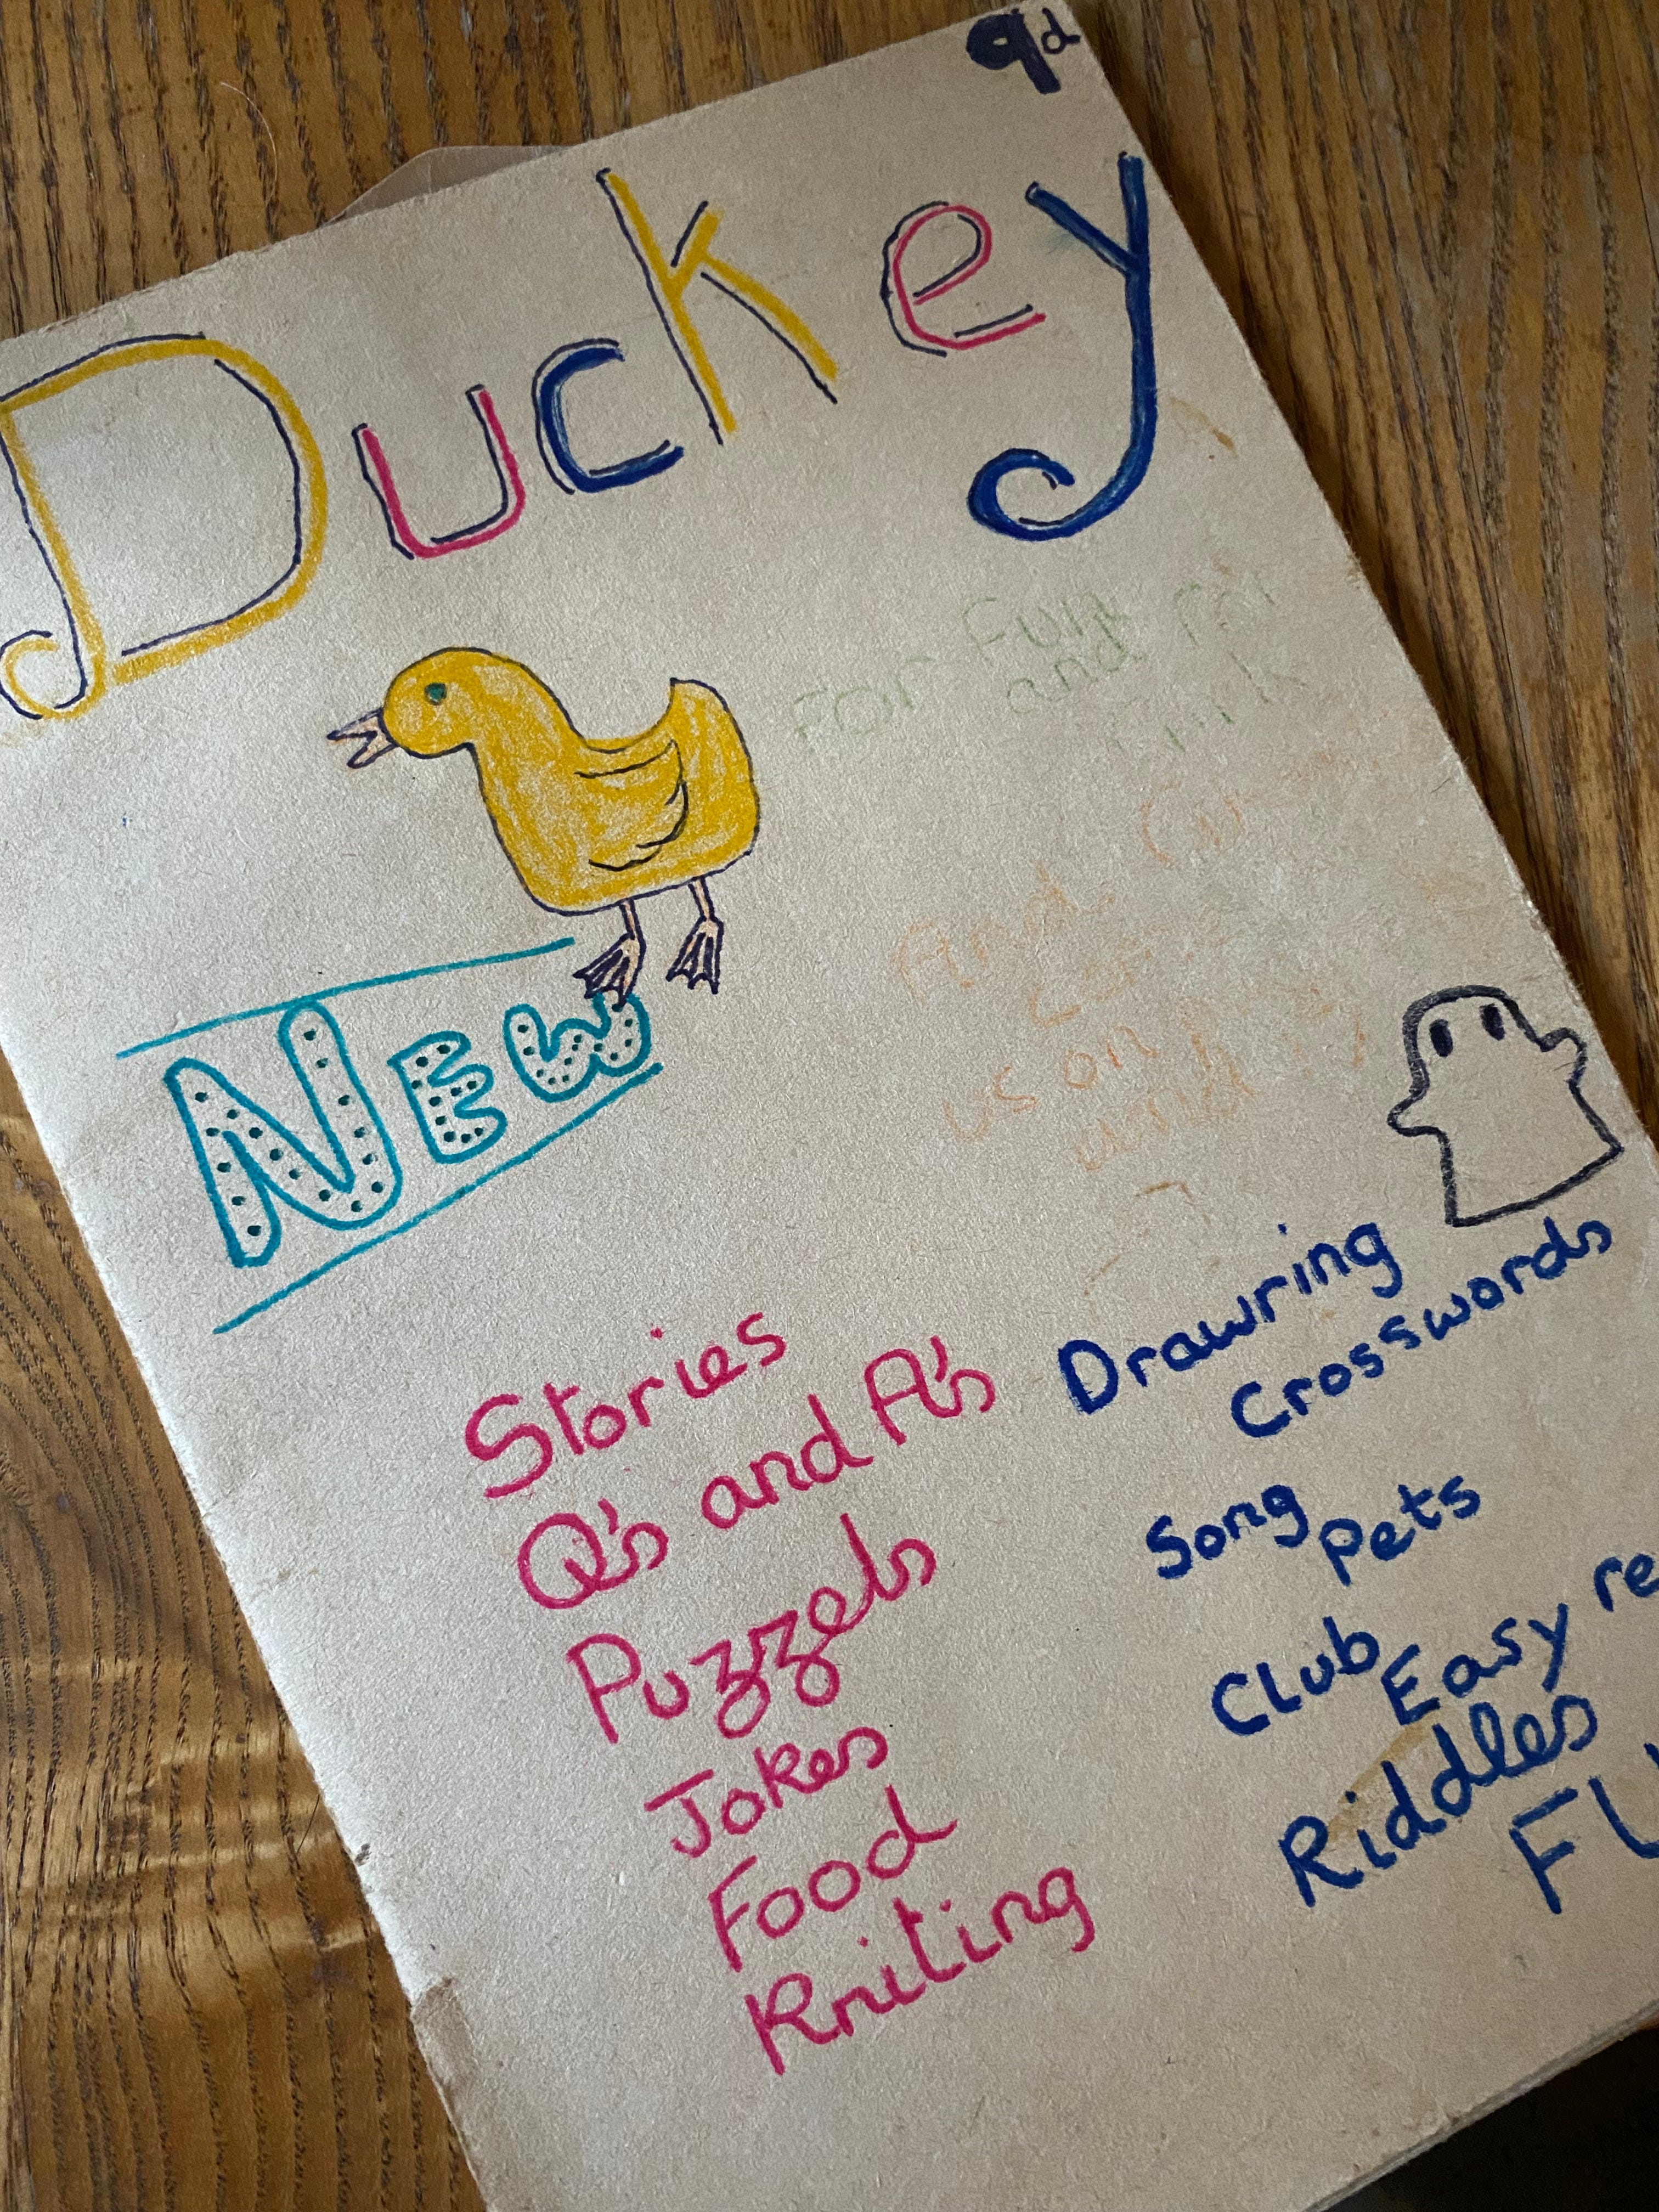 9d
Duckey
For Fun
and
And
us on
and
New
Stories
Q's and A's
Puzzels
Jokes
Food
Kniting
Drawring
Crosswords
Song
Pets
Club
Easy re
Riddles